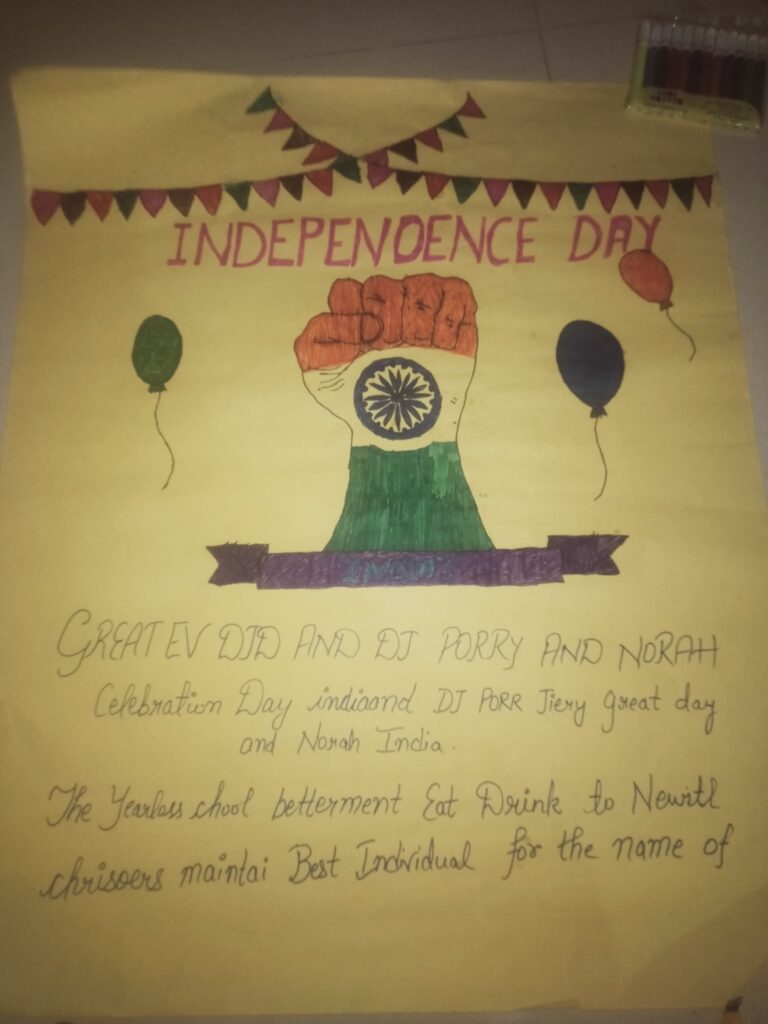 INDEPENDENCE DAY
INDIA
GREAT EV DJD AND DJ PORRY AND NORAH
Celebration Day indiaand DJ PORR Jiery great day
and Norah India.
The Yearlass chool betterment Eat Drink to Newitl
chrisoers maintai Best Individual for the name of